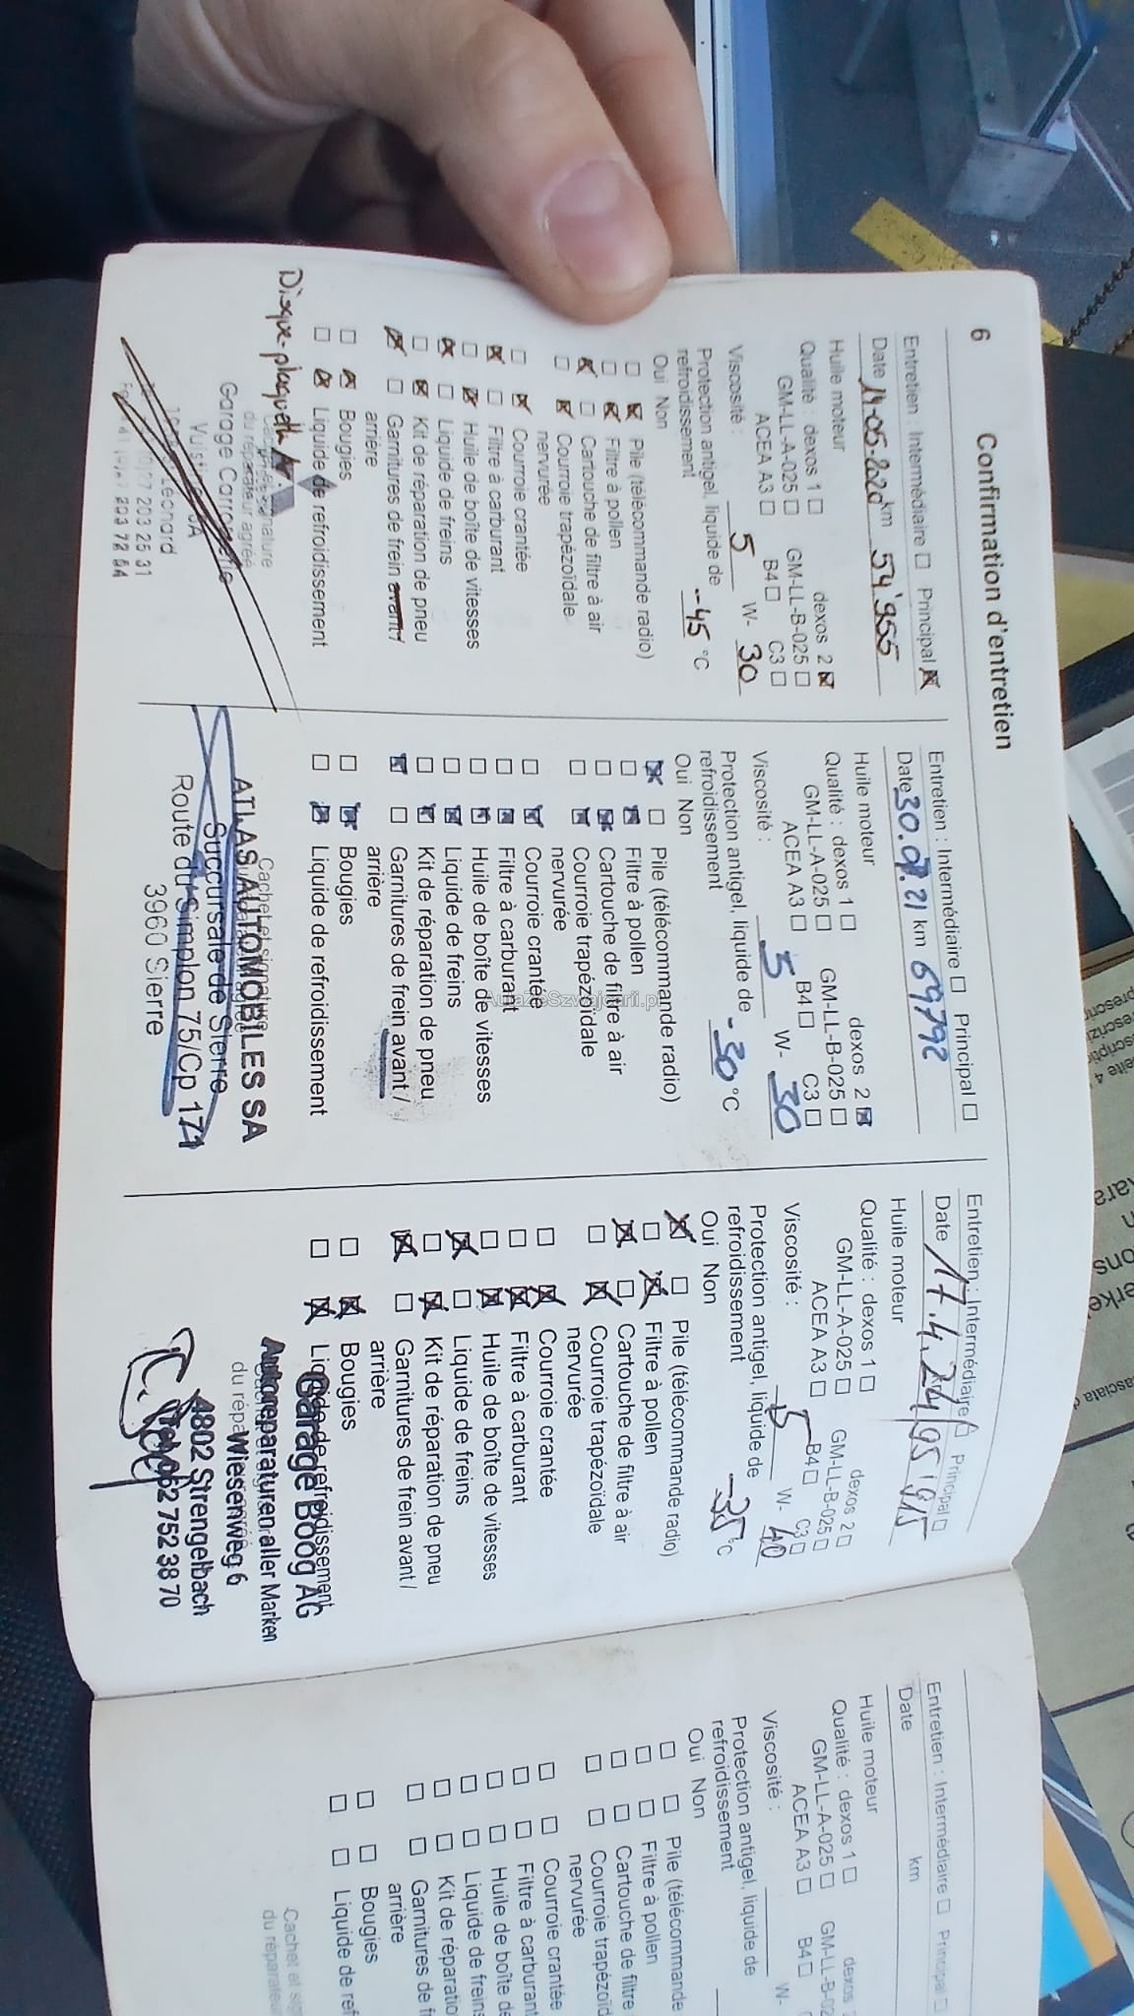 6
Confirmation d'entretien
Entretien : Intermédiaire ☐ Principal ☒
Date 14-05-202 km 54'955
Huile moteur
Qualité : dexos 1 ☐ dexos 2 ☒
GM-LL-A-025 ☐ GM-LL-B-025 ☐
ACEA A3 ☐ B4 ☐ C3 ☐
Viscosité : 5 W- 30
Protection antigel, liquide de
refroidissement -45 °C
Oui Non
☐ ☒ Pile (télécommande radio)
☐ ☒ Filtre à pollen
☒ ☐ Cartouche de filtre à air
☐ ☒ Courroie trapézoïdale
nervurée
☐ ☒ Courroie crantée
☒ ☐ Filtre à carburant
☐ ☒ Huile de boîte de vitesses
☒ ☐ Liquide de freins
☐ ☒ Kit de réparation de pneu
☒ ☐ Garnitures de frein avant /
arrière
☐ ☒ Bougies
☐ ☒ Liquide de refroidissement
Disque-plaquette Ar
du réparateur agréé
Garage
Léonard
203 25 31
203 72 54
Entretien : Intermédiaire ☐ Principal ☐
Date 30.07.21 km 69792
Huile moteur
Qualité : dexos 1 ☐ dexos 2 ☒
GM-LL-A-025 ☐ GM-LL-B-025 ☐
ACEA A3 ☐ B4 ☐ C3 ☐
Viscosité : 5 W- 30
Protection antigel, liquide de
refroidissement -30 °C
Oui Non
☒ ☐ Pile (télécommande radio)
☐ ☒ Filtre à pollen
☐ ☒ Cartouche de filtre à air
☐ ☒ Courroie trapézoïdale
nervurée
☐ ☒ Courroie crantée
☐ ☒ Filtre à carburant
☐ ☒ Huile de boîte de vitesses
☐ ☒ Liquide de freins
☐ ☒ Kit de réparation de pneu
☒ ☐ Garnitures de frein avant /
arrière
☐ ☒ Bougies
☐ ☒ Liquide de refroidissement
ATLAS AUTOMOBILES SA
Succursale de Sierre
Route du Simplon 75/Cp 171
3960 Sierre
Entretien : Intermédiaire ☐ Principal ☐
Date 17.4.24 95'915
Huile moteur
Qualité : dexos 1 ☐ dexos 2 ☐
GM-LL-A-025 ☐ GM-LL-B-025 ☐
ACEA A3 ☐ B4 ☐ C3 ☐
Viscosité : 5 W- 40
Protection antigel, liquide de
refroidissement -35 °C
Oui Non
☒ ☐ Pile (télécommande radio)
☐ ☒ Filtre à pollen
☒ ☐ Cartouche de filtre à air
☐ ☒ Courroie trapézoïdale
nervurée
☐ ☒ Courroie crantée
☐ ☒ Filtre à carburant
☐ ☒ Huile de boîte de vitesses
☒ ☐ Liquide de freins
☐ ☒ Kit de réparation de pneu
☒ ☐ Garnitures de frein avant /
arrière
☐ ☒ Bougies
☐ ☒ Liquide de refroidissement
Garage Boog AG
Autoreparaturen aller Marken
Wiesenweg 6
4802 Strengelbach
062 752 38 70
Entretien : Intermédiaire ☐ Principal ☐
Date km
Huile moteur
Qualité : dexos 1 ☐ dexos
GM-LL-A-025 ☐ GM-LL-B-02
ACEA A3 ☐ B4 ☐
Viscosité : W-
Protection antigel, liquide de
refroidissement
Oui Non
☐ ☐ Pile (télécommande
☐ ☐ Filtre à pollen
☐ ☐ Cartouche de filtre
☐ ☐ Courroie trapézoïd
nervurée
☐ ☐ Courroie crantée
☐ ☐ Filtre à carburant
☐ ☐ Huile de boîte d
☐ ☐ Liquide de freins
☐ ☐ Kit de réparatio
☐ ☐ Garnitures de f
arrière
☐ ☐ Bougies
☐ ☐ Liquide de ref
Cachet et sig
du réparateu